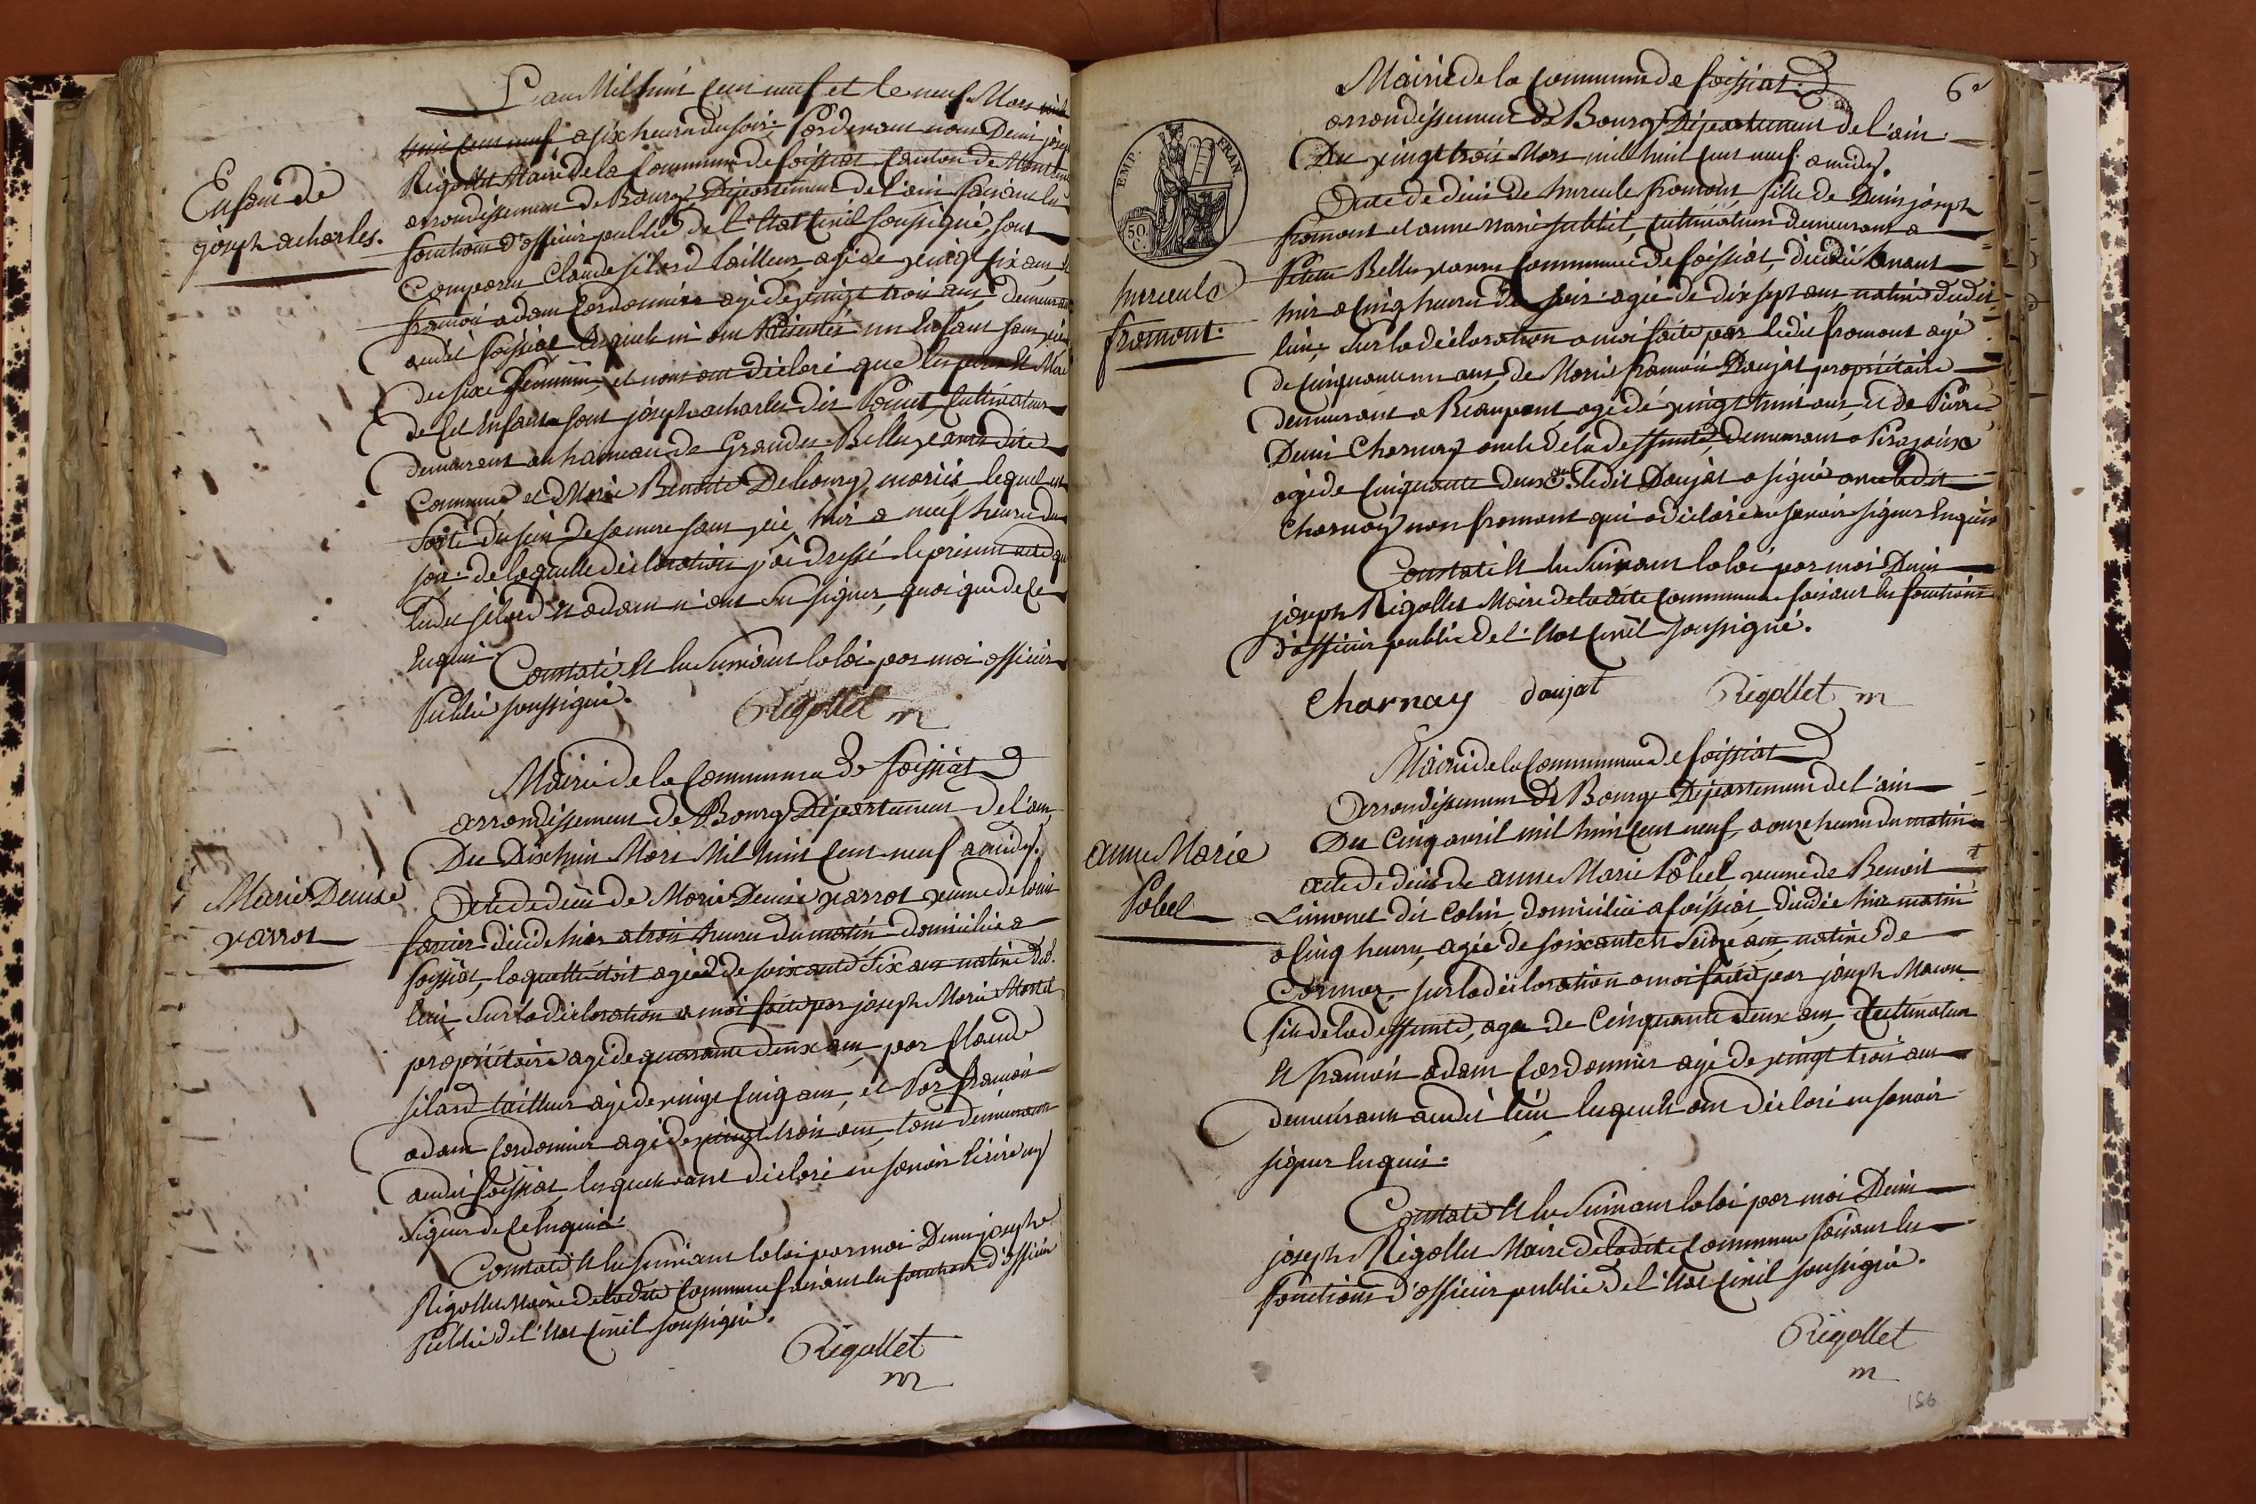 L'an Mil huit Cent neuf et le neuf Mars
huit Cent neuf a six heures du soir. Pardevant nous Denis joseph
Rigollet Maire de la Commune de foissiat Canton de
arrondissement de Bourg Département de l'ain faisant les
fonctions d'officier public de l'Etat Civil soussigné, sont
Comparus Claude silard tailleur, agé de vingt six ans, et
françois adam Cordonnier agé de vingt trois ans demeurant
audit foissiat lesquels m'ont Présentés un Enfant sans vie
du sexe féminin, et nous ont déclaré que les père et Mere
de Cet Enfant sont joseph acharles dit Poncet, Cultivateurs
demeurant au hameau de Grandes Bellevavres dite
Commune, et Marie Benoite Debourg mariés, lequel est
sorti du sein de sa mere sans vie, hier a neuf heures du
soir. de laquelle déclaration j'ai dressé le présent acte que
lesdits silard et adam n'ont su signer, quoique de Ce
Enquis. Constaté Et lu suivant la loi par moi officier
Public soussigné.
Rigollet m
Enfant de
joseph acharles.
Mairie de la Commune de foissiat
arrondissement de Bourg Département de l'ain
Du Dixhuit Mars Mil huit Cent neuf a midy.
Marie Denise
varrot
Acte de décès de Marie Denise varrot veuve de louis
décédé hier a trois heures du matin domiciliée a
foissiat, laquelle étoit agée de soixante six ans native dud.
lieu, Sur la déclaration a moi faite par joseph Marie
propriétaire agé de quarante deux ans, par Claude
silard tailleur agé de vingt Cinq ans, et Par françois
adam Cordonnier agé de vingt trois ans, tous demeurants
audit foissiat, lesquels ont déclaré ne savoir Ecrire ny
signer de Ce Enquis.
Constaté Et lu suivant la loi par moi Denis joseph
Rigollet Maire de ladite Commune faisant les fonctions d'officier
Public de l'Etat Civil soussigné.
Rigollet
m
6e
Mairie de la Commune de foissiat
arrondissement de Bourg Département de l'ain.
Du vingt trois Mars mil huit Cent neuf. a midy.
EMP. FRAN.
50. C.
hurcule
fromont.
Acte de décès de hurcule fromont, fille de Denis joseph
fromont et anne marie sublet, Cultivateurs demeurant a
Petites Bellevavres Commune de foissiat, décédée avant
hier a Cinq heures du soir, agée de dix sept ans native dudit
lieu, Sur la déclaration a moi faite par ledit fromont agé
de Cinquante un ans, de Marie françois Doujat propriétaire
demeurant a Beaupont, agé de vingt huit ans, et de Pierre
Denis Charnay oncle de la deffunte, demeurant a Pirajoux
agé de Cinquante deux ans. ledit Doujat a signé avec ledit
Charnay non fromont qui a déclaré ne savoir signer Enquis
Constaté Et lu Suivant la loi par moi Denis
joseph Rigollet Maire de ladite Commune faisant les fonctions
d'officier public de l'Etat Civil soussigné.
Charnay doujat Rigollet m
Mairie de la Commune de foissiat
arrondissement De Bourg Département de l'ain
Du Cinq avril mil huit Cent neuf, a onze heures du matin
anne Marie
Pobel
acte de décès de anne Marie Pobel veuve de Benoit
Limonet dit Colin, domiciliée a foissiat, décédée hier matin
a Cinq heures, agée de soixante et seize ans, native de
Cormoz, sur la déclaration a moi faite par joseph Maron
fils de la deffunte, age de Cinquante deux ans, Cultivateur
Et françois adam Cordonnier agé de vingt trois ans
demeurants audit lieu lesquels ont déclaré ne savoir
signer Enquis.
Constaté Et lu Suivant la loi par moi Denis
joseph Rigollet Maire de ladite Commune faisant les
fonctions d'officier public de l'Etat Civil soussigné.
Rigollet
m
156